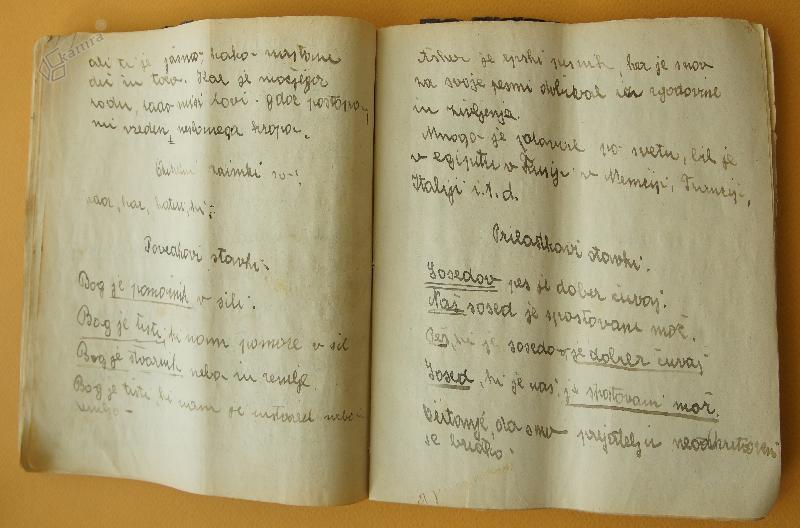 kamra
ali ti je jasno, kako
dič in to
rodu, rado misli lovi gdor postopa,
ni vreden, kropa.
Oziralni zaimki so:
kdor, kar, kateri, ki:
Povedkovi stavki:
Bog je pomočnik v sili.
Bog je tisti, ki nam pomore v sil
Bog je stvarnik neba in zemlje.
Bog je tisti, ki nam je ustvaril nebo
zemljo
Ašker je epski pesnik, ker je snov
za svoje pesmi dobival iz zgodovine
in življenja.
Mnogo je potoval po svetu, bil je
v egiptu v Rusiji v Nemčiji, Turčiji,
Italiji i.t.d.
Prilastkovi stavki.
Sosedov pes je dober čuvaj.
Naš sosed je spoštovani mož.
Pes, ki je sosedov je dober čuvaj
Sosed, ki je naš, je spoštovani mož.
da smo prijatelji
se